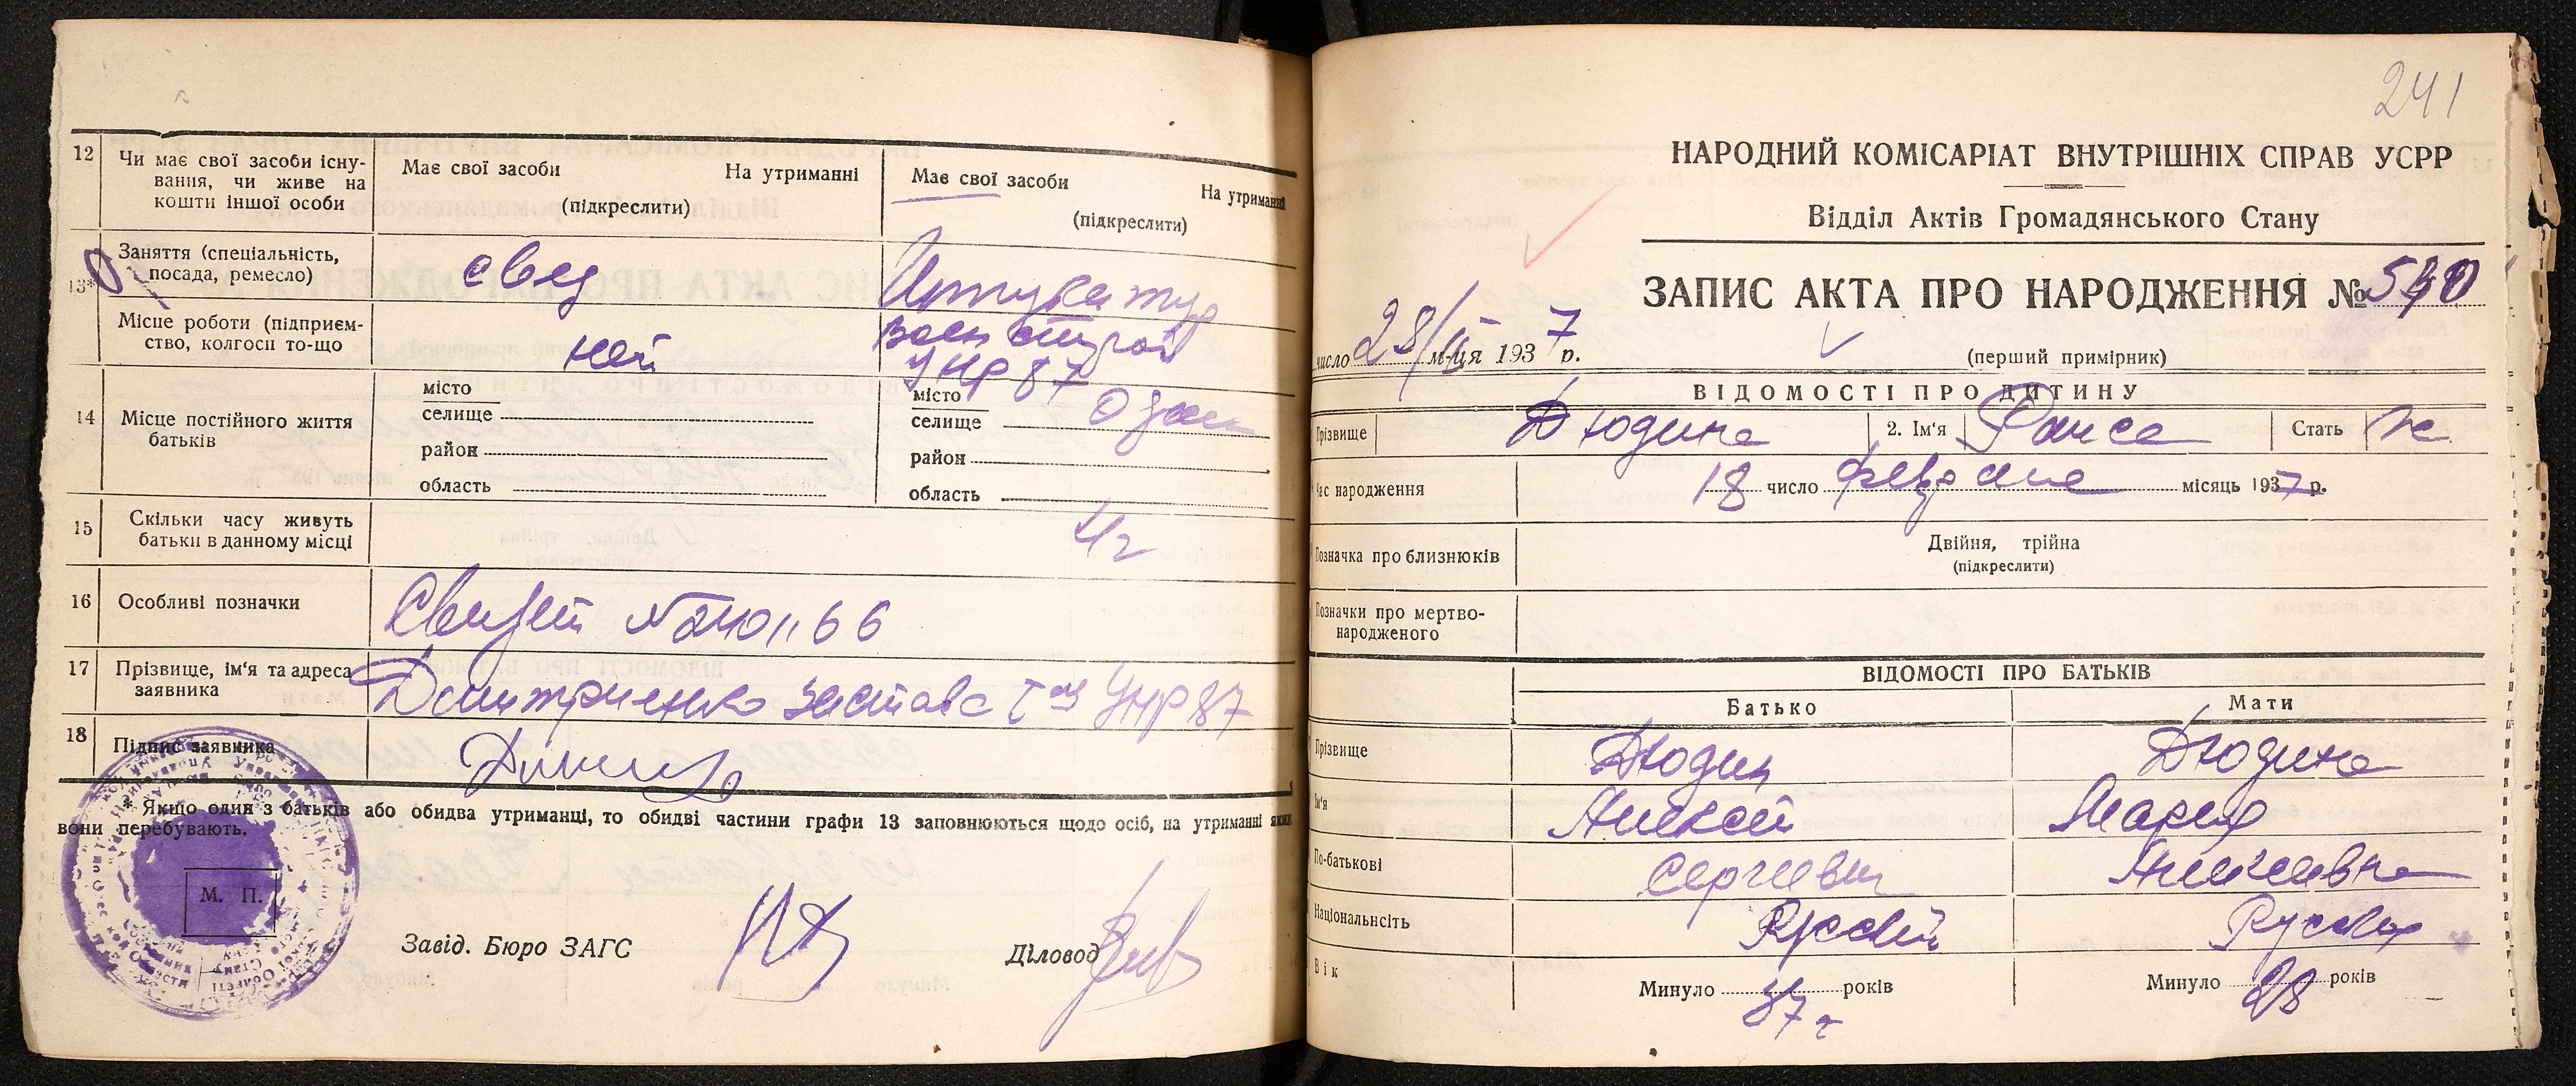 12
Чи має свої засоби існу-
вання, чи живе на
кошти іншої особи
Має свої засоби
На утриманні
(підкреслити)
Має свої засоби
На утриманні
(підкреслити)
13*
Заняття (спеціальність,
посада, ремесло)
Штукатур
Місце роботи (підприєм-
ство, колгосп то-що
УНР 87
14
Місце постійного життя
батьків
місто
селище
район
область
місто
селище
район
область
15
Скільки часу живуть
батьки в данному місці
4 г
16
Особливі позначки
17
Прізвище, ім'я та адреса
заявника
Дмитриенко застава УНР 87
18
Підпис заявника
* Якщо один з батьків або обидва утриманці, то обидві частини графи 13 заповнюються щодо осіб, на утриманні яких
вони перебувають.
М. П.
Завід. Бюро ЗАГС
Діловод
241
НАРОДНИЙ КОМІСАРІАТ ВНУТРІШНІХ СПРАВ УСРР
Відділ Актів Громадянського Стану
ЗАПИС АКТА ПРО НАРОДЖЕННЯ №
число 28/ м-ця 1937 р.
(перший примірник)
ВІДОМОСТІ ПРО ДИТИНУ
Прізвище
Дюдина
2. Ім'я
Раиса
Стать
ж
Час народження
18 число февраля місяць 1937 р.
Позначка про близнюків
Двійня, трійна
(підкреслити)
Позначки про мертво-
народженого
ВІДОМОСТІ ПРО БАТЬКІВ
Батько
Мати
Прізвище
Дюдин
Дюдина
Ім'я
Алексей
Мария
По-батькові
Сергеевич
Алексеевна
Національність
Русский
Русская
Вік
Минуло 37 років
Минуло 28 років